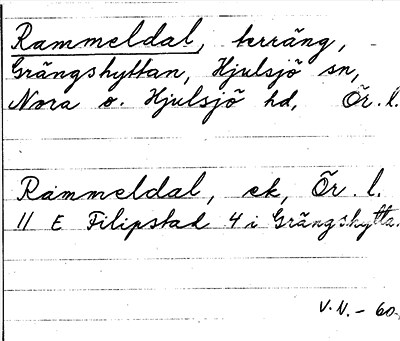 Rammeldal, terräng,
Grängshyttan, Hjulsjö sn,
Nora o. Hjulsjö hd, Ör. l.
Rammeldal, ek, Ör. l.
11 E Filipstad 4 i Grängshytta.
V.N. - 60.